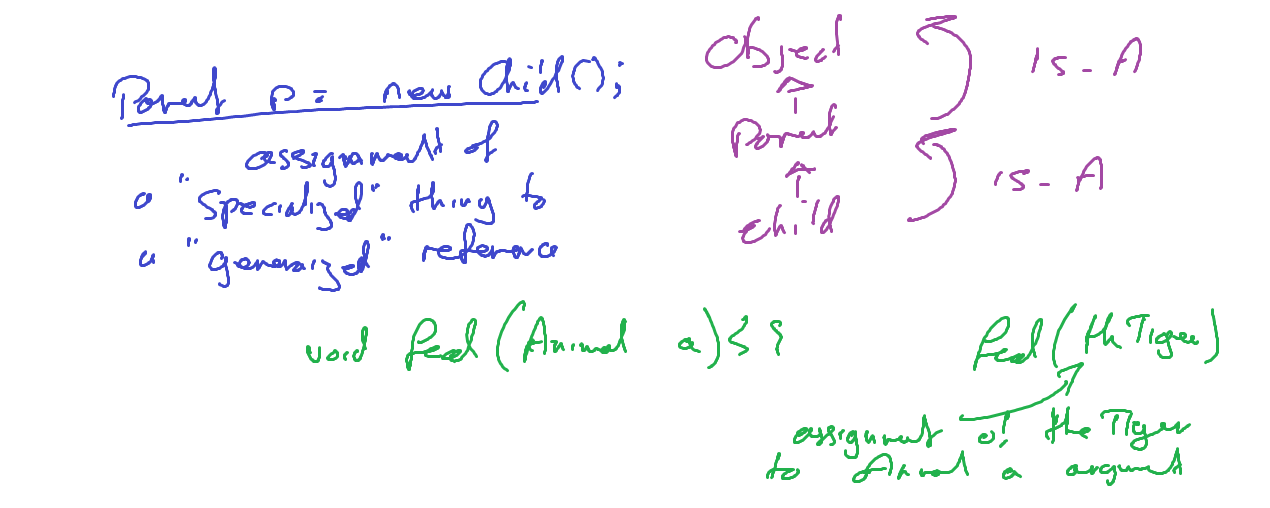 Parent p = new Child();
assignment of
a "Specialized" thing to
a "generalized" reference
Object
is-A
Parent
is-A
child
void feed (Animal a) { }
feed (theTiger)
assignment of theTiger
to Animal a argument